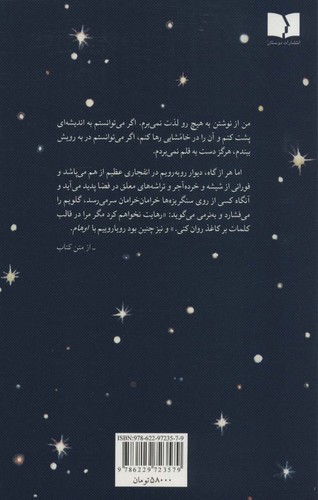 انتشارات دوستان
من از نوشتن به هیچ رو لذت نمی‌برم. اگر می‌توانستم به اندیشه‌ای
پشت کنم و آن را در خامُشایی رها کنم، اگر می‌توانستم در به رویش
ببندم، هرگز دست به قلم نمی‌بردم.
اما هر از گاه، دیوار روبه‌رویم در انفجاری عظیم از هم می‌پاشد و
فورانی از شیشه و خرده‌آجر و تراشه‌های معلق در فضا پدید می‌آید و
آنگاه کسی از روی سنگریزه‌ها خرامان‌خرامان سرمی‌رسد، گلویم را
می‌فشارد و به‌نرمی می‌گوید: «رهایت نخواهم کرد مگر مرا در قالب
کلمات بر کاغذ روان کنی.» و نیز چنین بود رویاروییم با اوهام.
ـ از متن کتاب
ISBN: 978-622-97235-7-9
9 786229 723579
۵۸۰۰۰ تومان